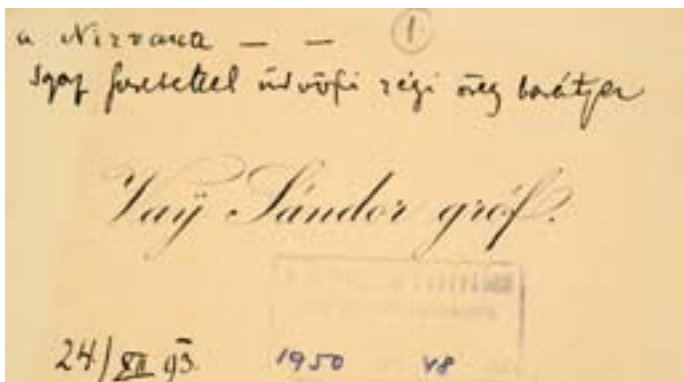 a Nirvana — — 1
Igaz szeretettel üdvözli régi öreg barátja
Vaÿ Sándor gróf.
24/XII 93.
1950 48